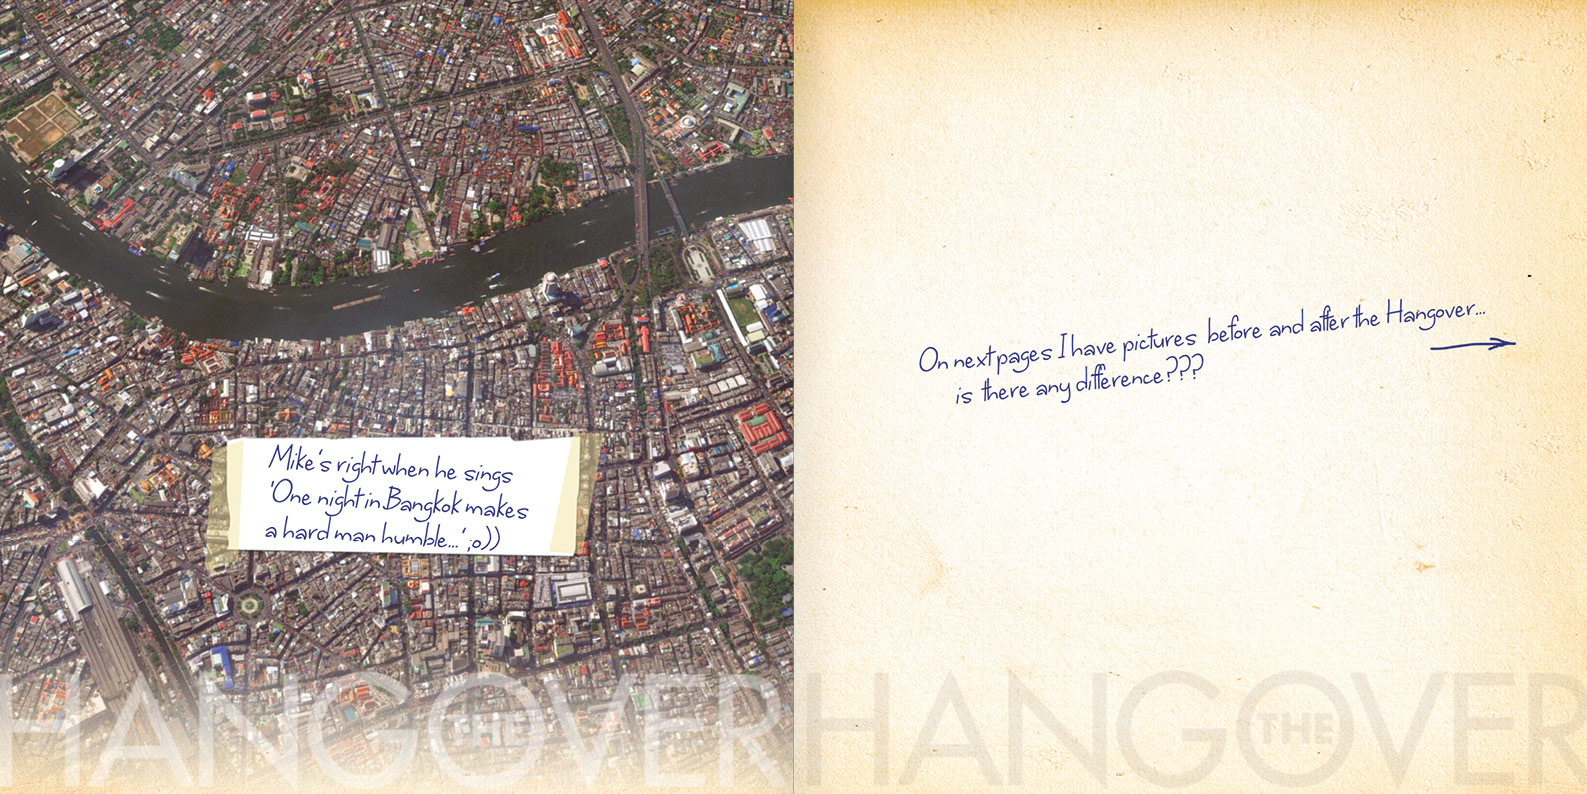 Mike's right when he sings
'One night in Bangkok makes
a hard man humble...' ;o))
On next pages I have pictures before and after the Hangover...
is there any difference???
THE
HANGOVER
THE
HANGOVER